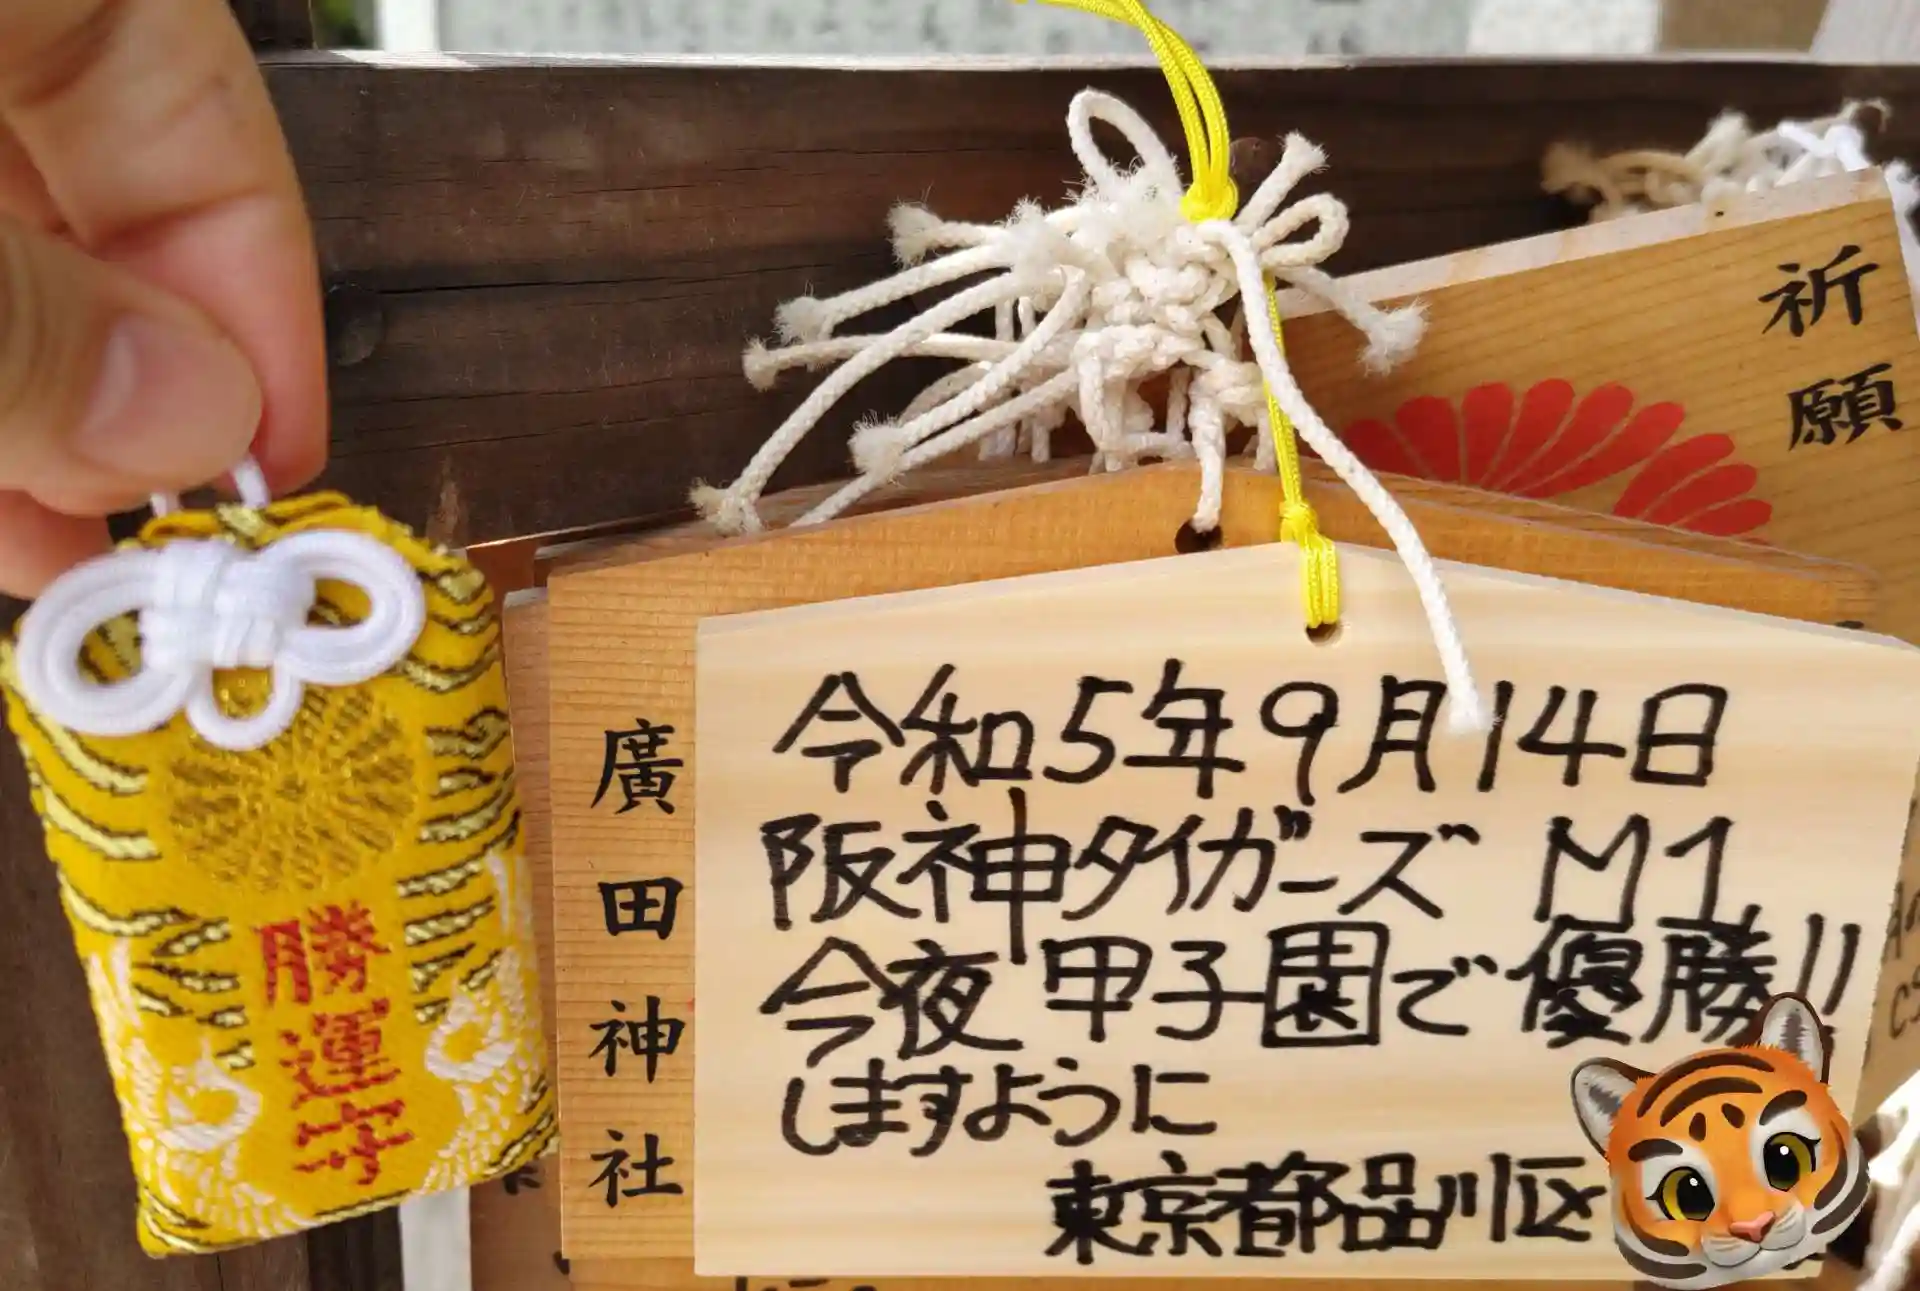 勝運守
廣田神社
令和5年9月14日
阪神タイガーズ M1
今夜 甲子園で優勝!!
しますように
東京都品川区
祈願